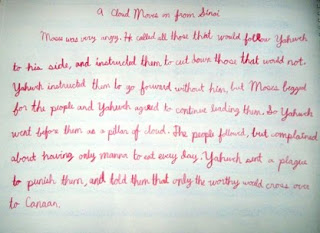 A Cloud Moves in from Sinai
Moses was very angry. He called all those that would follow Yahweh
to his side, and instructed them to cut down those that would not.
Yahweh instructed them to go forward without him, but Moses begged
for the people and Yahweh agreed to continue leading them. So Yahweh
went before them as a pillar of cloud. The people followed, but complained
about having only manna to eat every day. Yahweh sent a plague
to punish them, and told them that only the worthy would cross over
to Canaan.